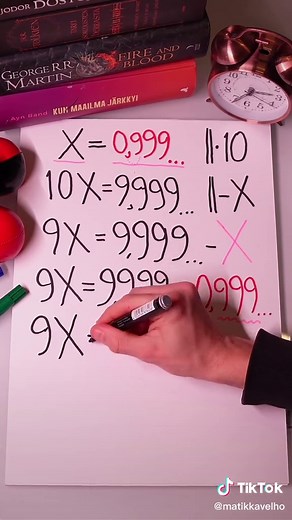 JODOR DOSTO
GEORGE R.R. MARTIN
FIRE AND BLOOD
Ayn Rand KUN MAAILMA JÄRKKYI
X = 0,999... ||·10
10X=9,999... ||-X
9X = 9,999... - X
9X=9,999 0,999...
9X
TikTok
@matikkavelho